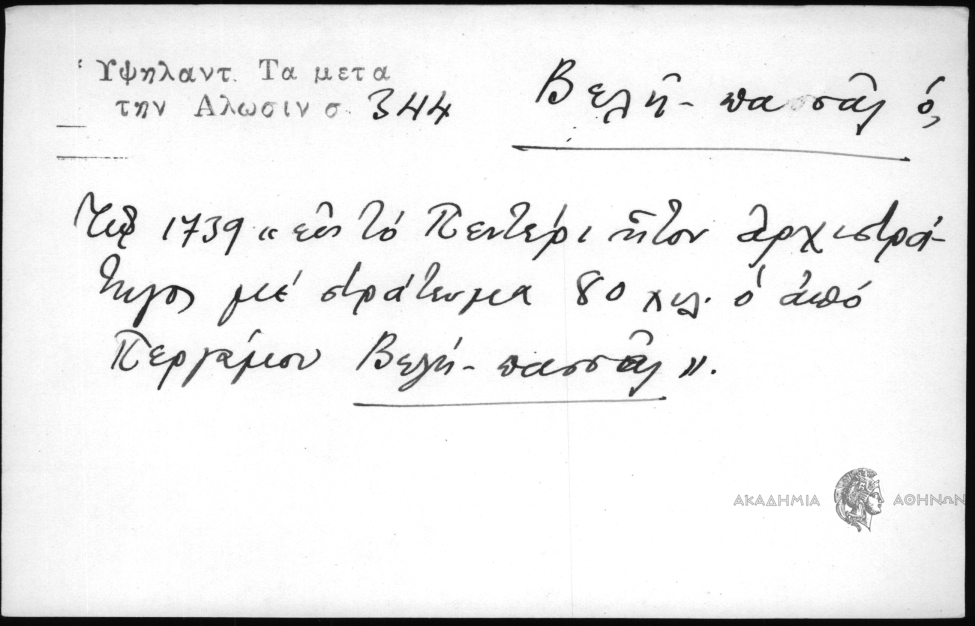 Ὑψηλαντ. Τα μετα
την Αλωσιν σ. 344
Βελῆ-πασσᾶς ὁ,
Τῷ 1739 « εἰς τό Πεντέρι ἦτον ἀρχιστρά-
τηγος μέ στράτευμα 80 χιλ. ὁ ἀπό
Περγάμου Βελῆ-πασσᾶς ».
ΑΚΑΔΗΜΙΑ ΑΘΗΝΩΝ